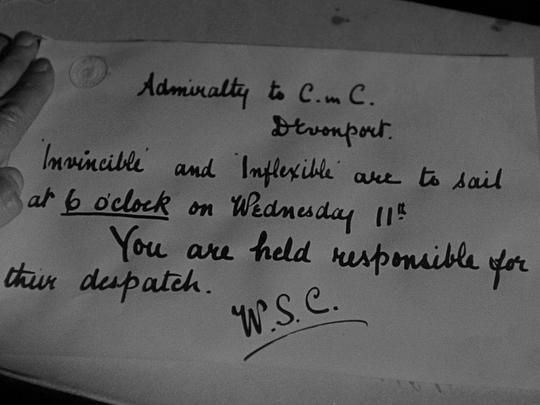 Admiralty to C. in C.
Devonport.
'Invincible' and 'Inflexible' are to sail
at 6 o'clock on Wednesday 11th
You are held responsible for
their despatch.
W.S.C.